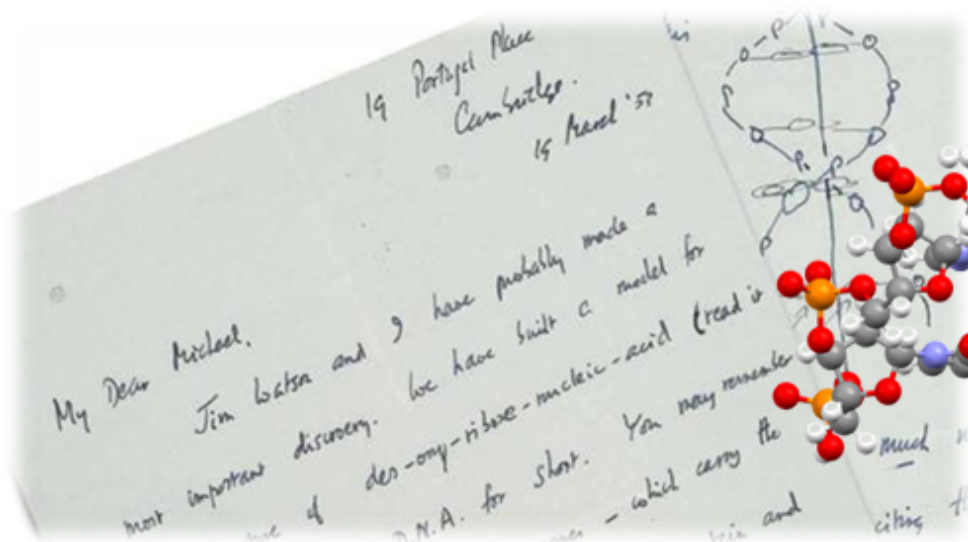 19 Portugal Place
Cambridge.
19 March '53
My Dear Michael,
Jim Watson and I have probably made a
most important discovery. We have built a model for
of des-oxy-ribose-nucleic-acid (read it
D.N.A. for short. You may remember
– which carry the
and
much
citing